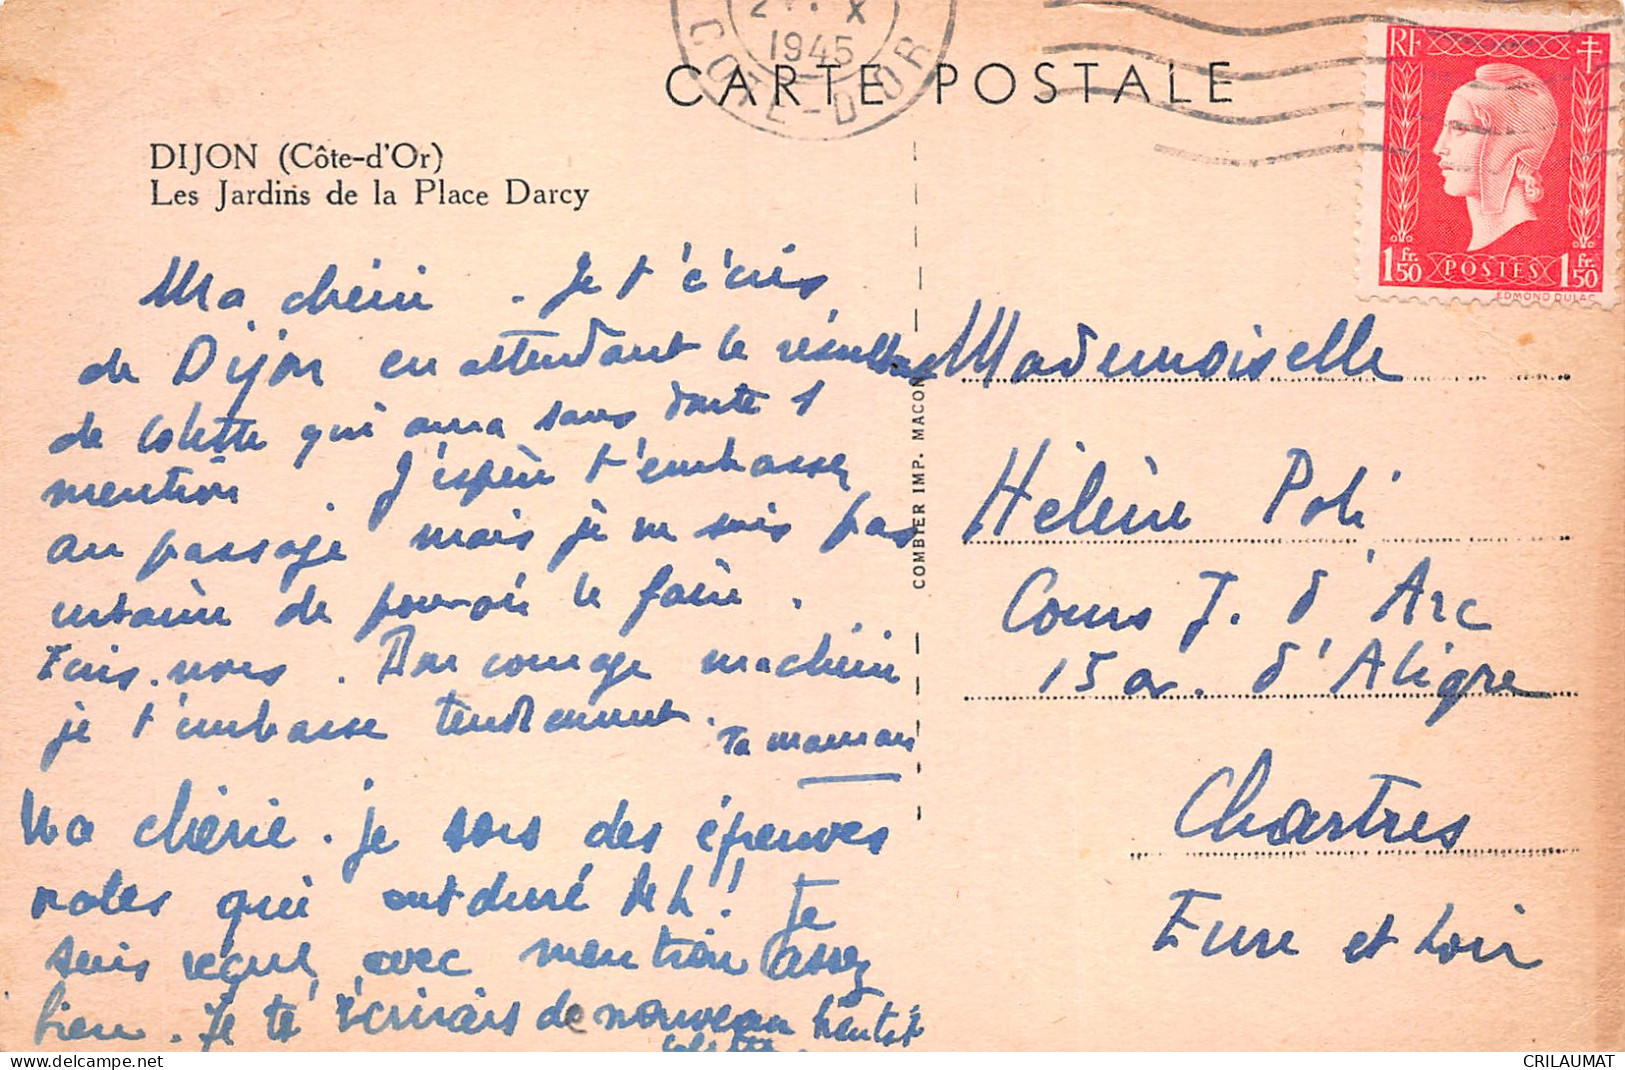 CARTE POSTALE
X
1945
COTE-D'OR
RF
1 fr. 50 POSTES 1 fr. 50
EDMOND DULAC
DIJON (Côte-d'Or)
Les Jardins de la Place Darcy
Ma chérie. Je t'écris
de Dijon en attendant le résultat
de Colette qui aura sans doute 1
mention. J'espère t'embrasser
au passage mais je ne suis pas
certaine de pouvoir le faire.
Écris-nous. Bon courage ma chérie
je t'embrasse tendrement.
Ta maman
Ma chérie. je sors des épreuves
notes qui ont duré h! Je
suis reçue avec mention assez
bien. Je t'écrirais de nouveau bientôt
Colette.
COMBIER IMP. MACON
Mademoiselle
Hélène Poli
Cours J. d'Arc
15 av. d'Aligre
Chartres
Eure et Loir
delcampe.net
CRILAUMAT